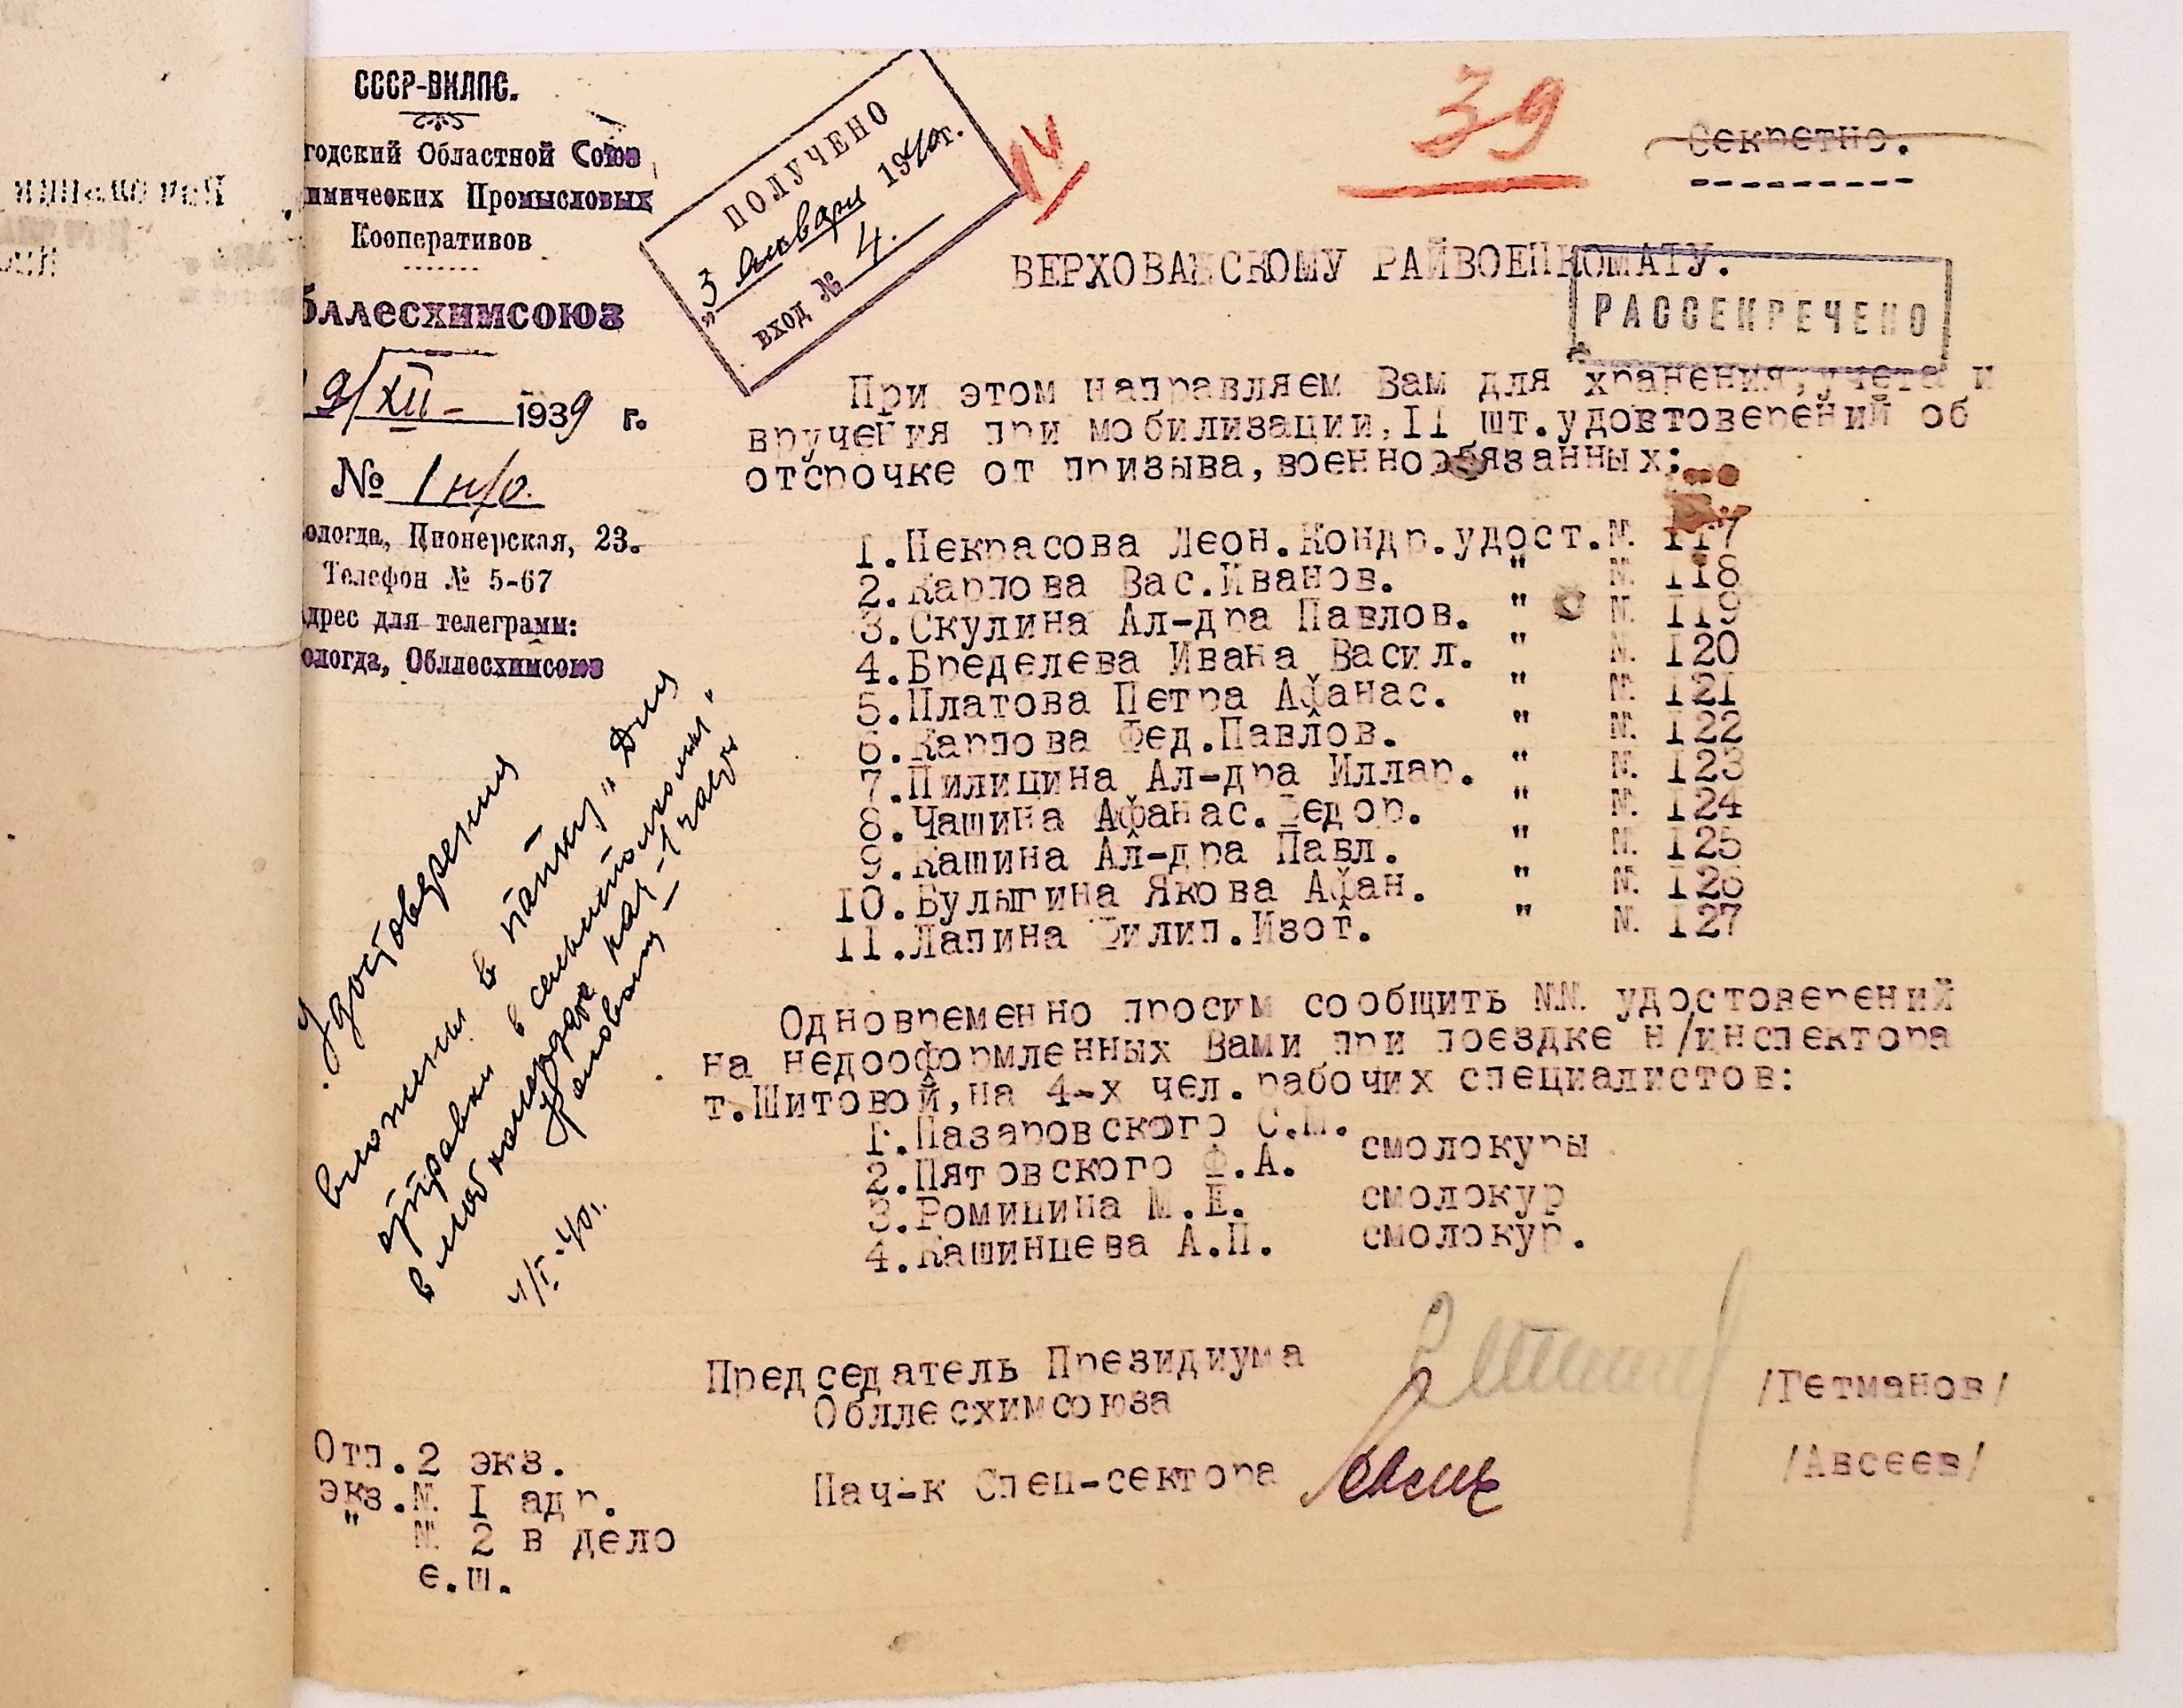 СССР-ВКПС.
годский Областной Союз
имических Промысловых
Кооперативов
бллесхимсоюз
9/XII- 1939 г.
№ 1 н/о.
ологда, Пионерская, 23.
Телефон № 5-67
дрес для телеграмм:
ологда, Обллесхимсоюз
ПОЛУЧЕНО
„3 января 1940г.
вход № 4.
14
39
Секретно.
ВЕРХОВАЖСКОМУ РАЙВОЕНКОМАТУ.
РАССЕКРЕЧЕНО
При этом направляем Вам для хранения, учета и
вручения при мобилизации, II шт. удовтоверений об
отсрочке от призыва, военнообязанных:
I. Некрасова Леон. Кондр. удост. №. II7
2. Карпова Вас. Иванов. " №. II8
3. Скулина Ал-дра Павлов. " №. II9
4. Бределева Ивана Васил. " №. I20
5. Платова Петра Афанас. " №. I21
6. Карпова Фед. Павлов. " №. I22
7. Пилицина Ал-дра Иллар. " №. I23
8. Чашина Афанас. Федор. " №. I24
9. Кашина Ал-дра Павл. " №. I25
IO. Булыгина Якова Афан. " №. I26
II. Лапина Филип. Изот. " №. I27
Одновременно просим сообщить №№. удостоверений
на недооформленных Вами при поездке н/инспектора
т. Шитовой, на 4-х чел. рабочих специалистов:
I. Назаровского С.М. смолокуры
2. Пятовского Ф.А.
3. Ромицина М.Е. смолокур
4. Кашинцева А.П. смолокур.
Удостоверения
вложены в папку „Для
отправки в
в
4/I-40г.
Председатель Президиума
Обллесхимсоюза /Гетманов/
Нач-к Спец-сектора /Авсеев/
Отп. 2 экз.
экз. №. I адр.
" №. 2 в дело
е.ш.